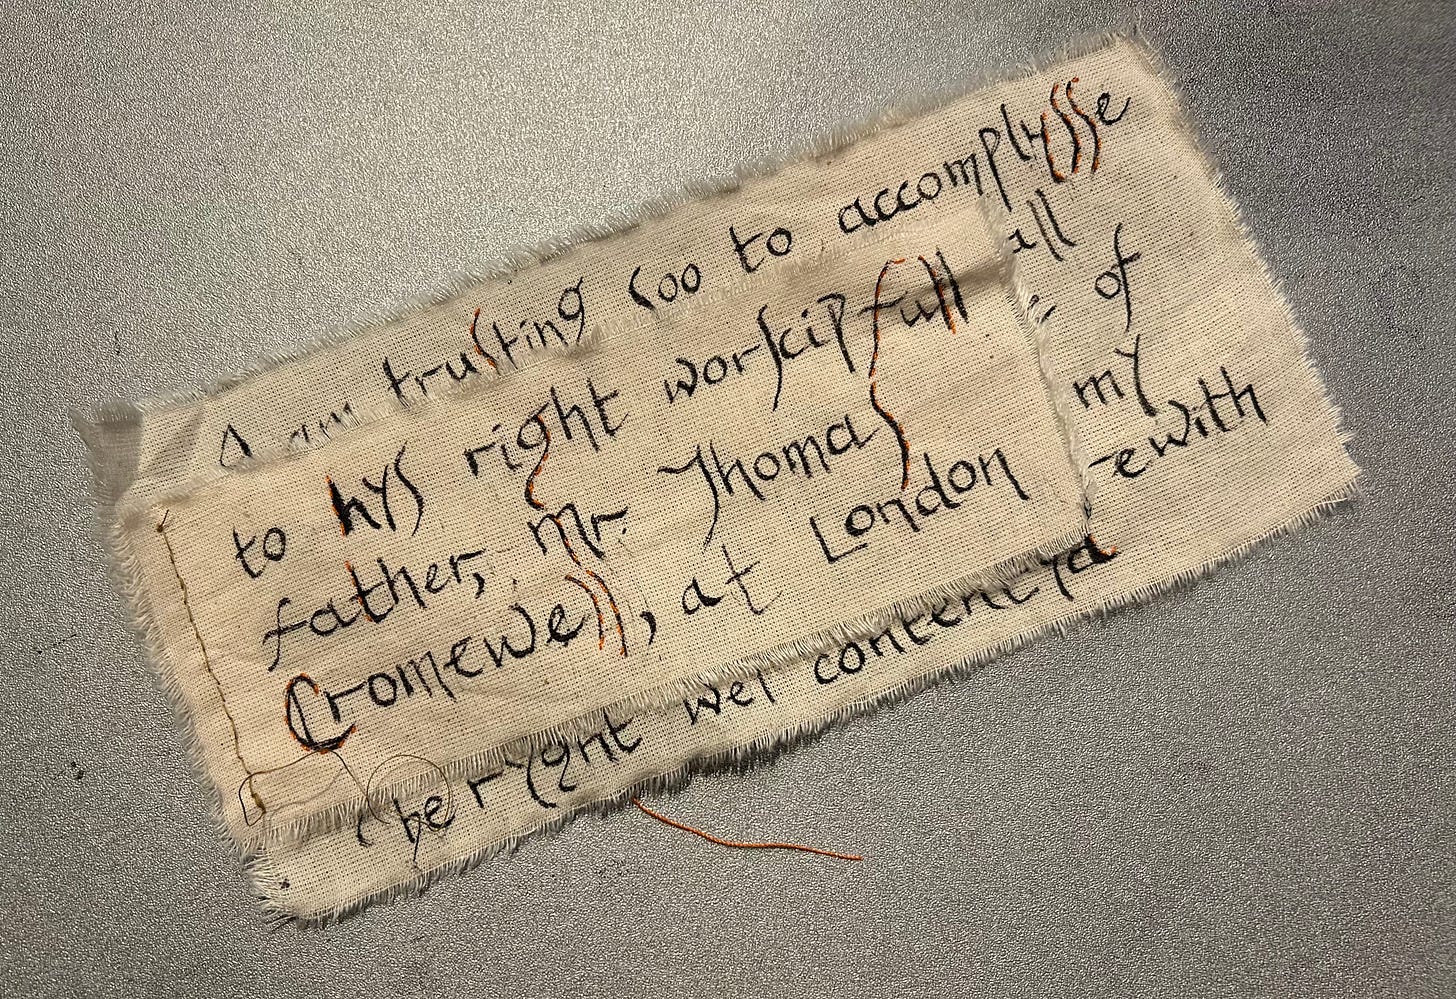 I am trusting soo to accomplysse
all
of
my
-ewith
to hys right worscipfull
father, mr. Thomas
Cromewell, at London
be ryght wel contentyd